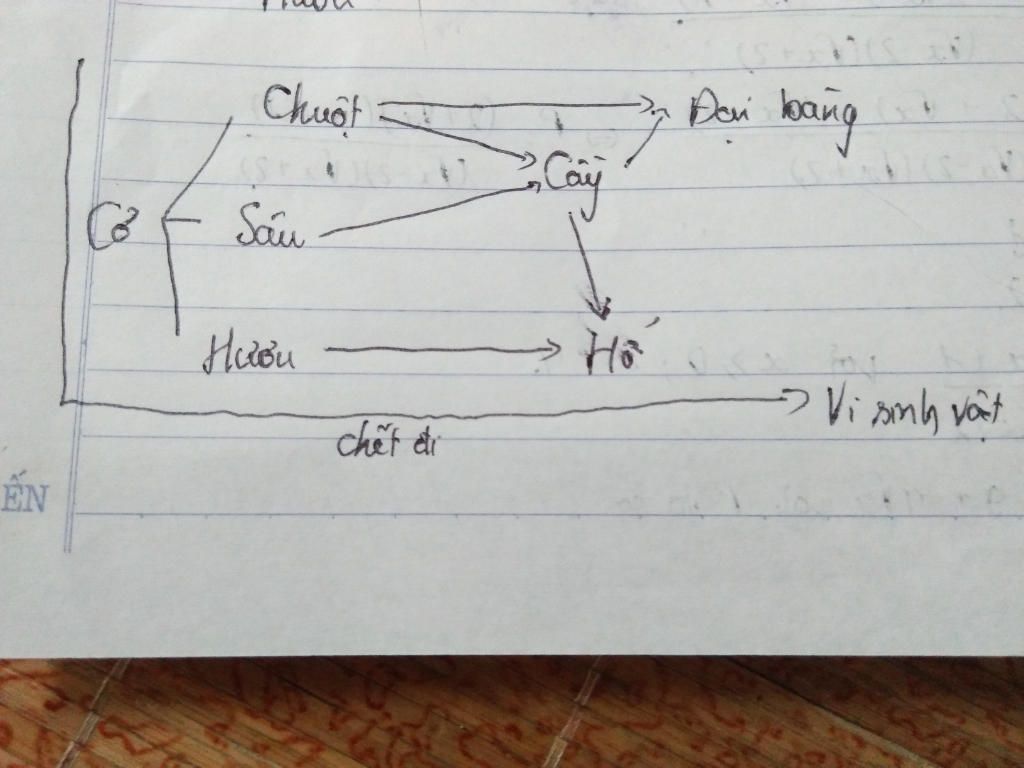 Hươu
Chuột Đại bàng
Cầy
Cỏ Sâu
Hươu Hổ
Vi sinh vật
chết đi
ẾN